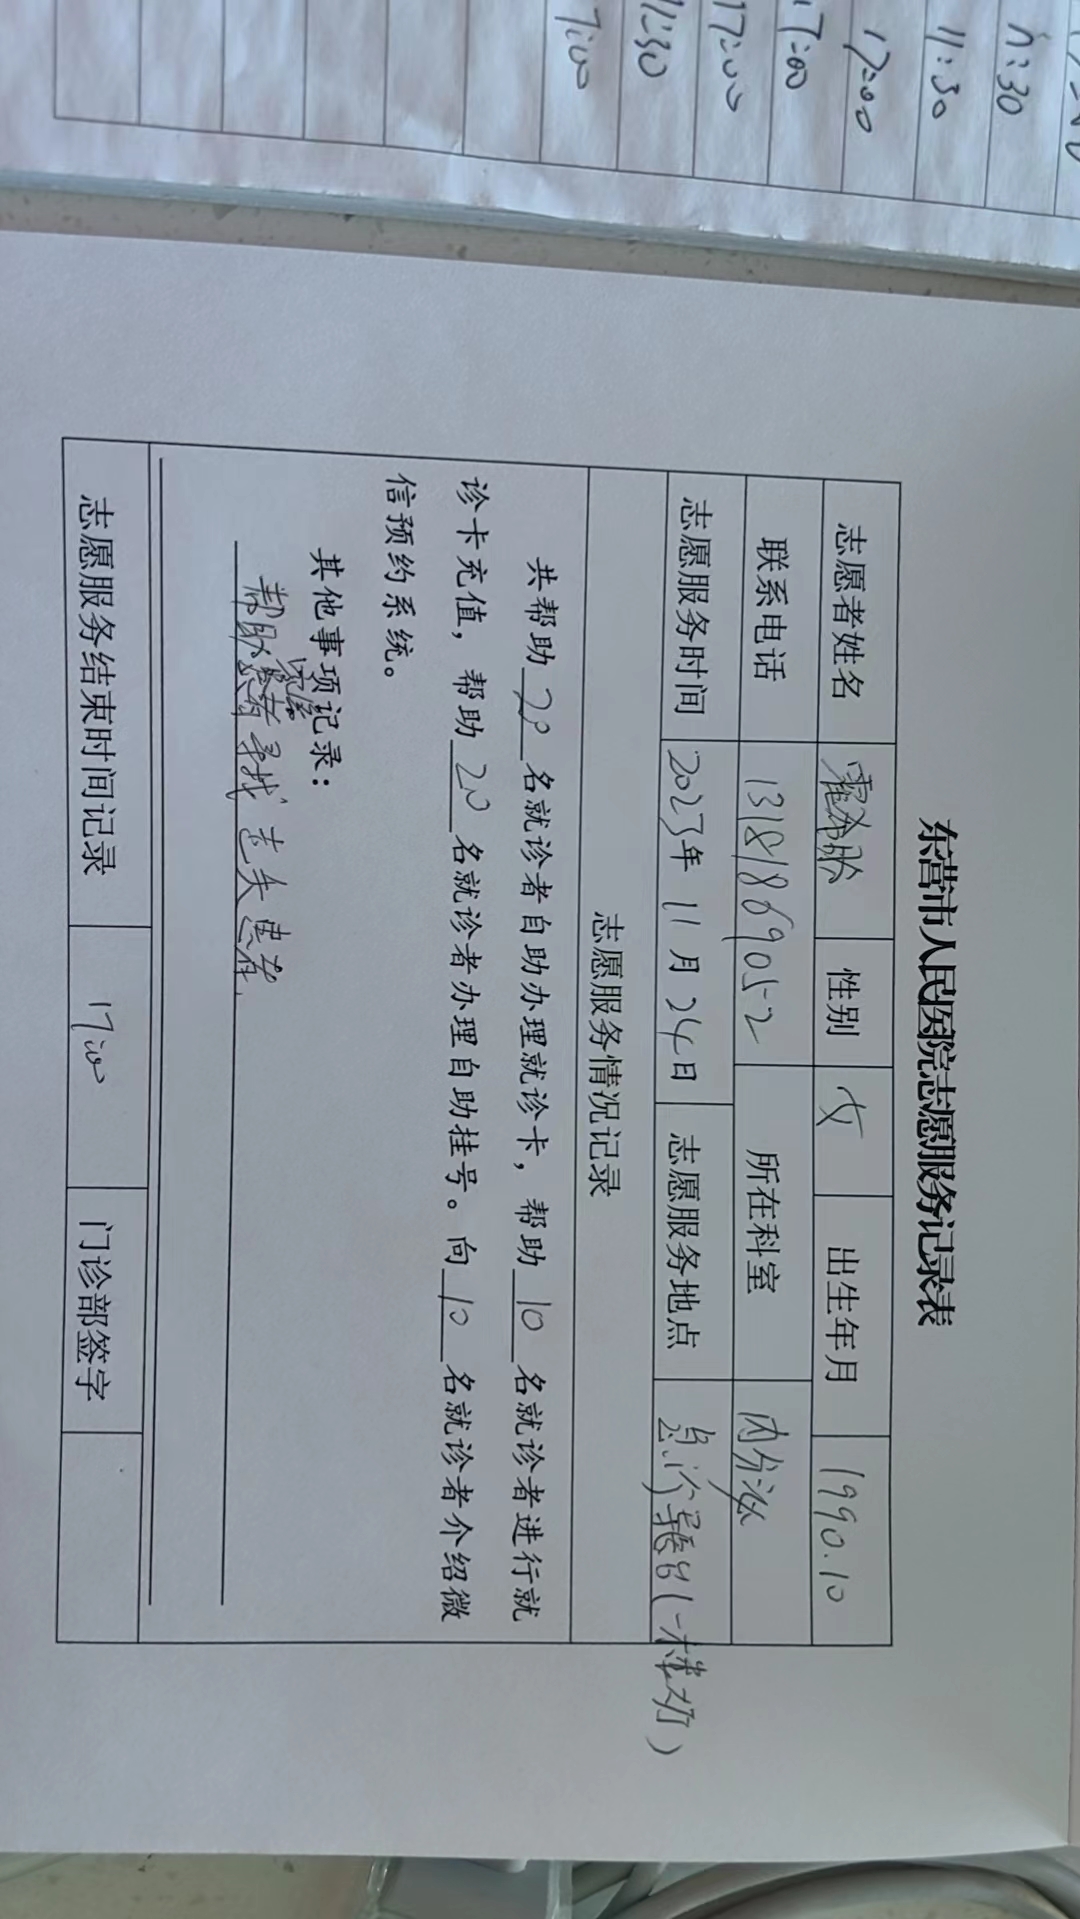 17:00
11:30
17:00
17:00
17:00
11:30
11:30
东营市人民医院志愿服务记录表
志愿者姓名 性别 女 出生年月 1990.10
联系电话 13181869052 所在科室 内分泌
志愿服务时间 2023年 11月 24日 志愿服务地点 导诊(一楼大厅)
志愿服务情况记录
共帮助 20 名就诊者自助办理就诊卡，帮助 10 名就诊者进行就
诊卡充值，帮助 20 名就诊者办理自助挂号。向 10 名就诊者介绍微
信预约系统。
其他事项记录：
家属
帮助 寻找走失患者.
志愿服务结束时间记录 17:00 门诊部签字